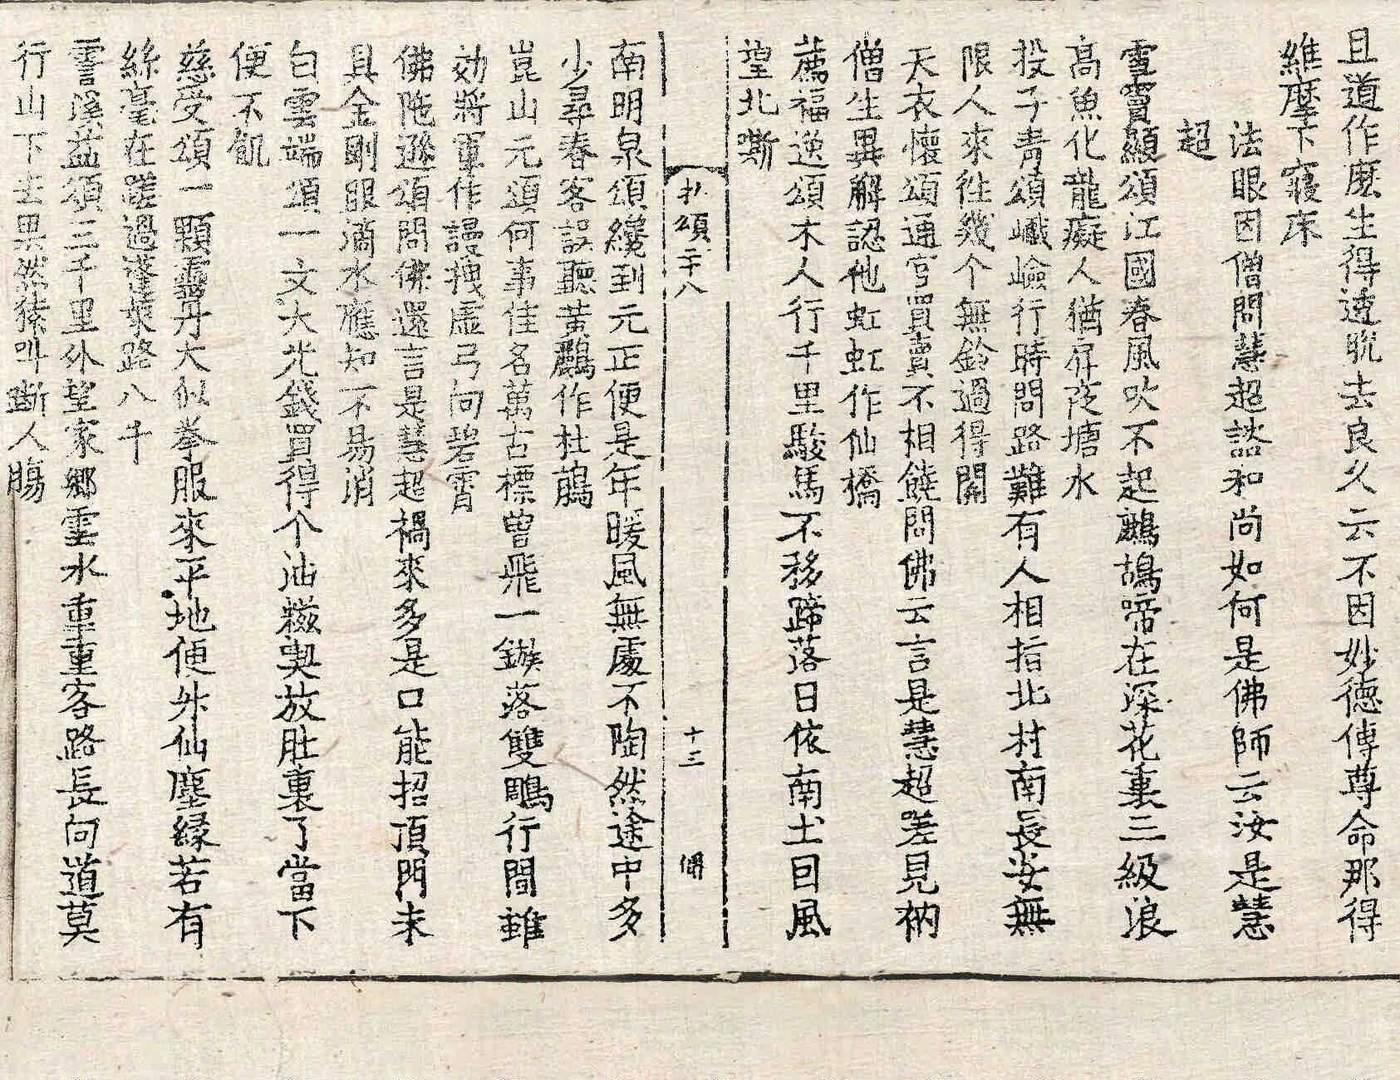 且道作麽生得透脫去良久云不因妙德傳尊命那得
維摩下寢床
法眼因僧問慧超諮和尚如何是佛師云汝是慧
超
雪竇顯頌江國春風吹不起鷓鴣啼在深花裏三級浪
高魚化龍癡人猶戽夜塘水
投子靑頌巇嶮行時問路難有人相指北村南長安無
限人來徃幾个無鈴過得關
天衣懷頌通官買賣不相饒問佛云言是慧超差見衲
僧生異解認他虹虹作仙橋
薦福逸頌木人行千里駿馬不移蹄落日依南土回風
望北嘶
拈頌二十八
十三
南明泉頌纔到元正便是年暖風無處不陶然途中多
少尋春客誤聽黃鸝作杜鵑
崑山元頌何事佳名萬古標曾飛一鏃落雙鵰行間雖
効將軍作謾拽虛弓向碧霄
佛陁遜頌問佛還言是慧超禍來多是口能招頂門未
具金剛眼滴水應知不易消
白雲端頌一文大光錢買得个油糍喫放肚裏了當下
便不飢
慈受頌一顆靈丹大似拳服來平地便升仙塵緣若有
絲毫在蹉過蓬萊路八千
霅溪益頌三千里外望家鄉雲水重重客路長向道莫
行山下去果然猿叫斷人腸